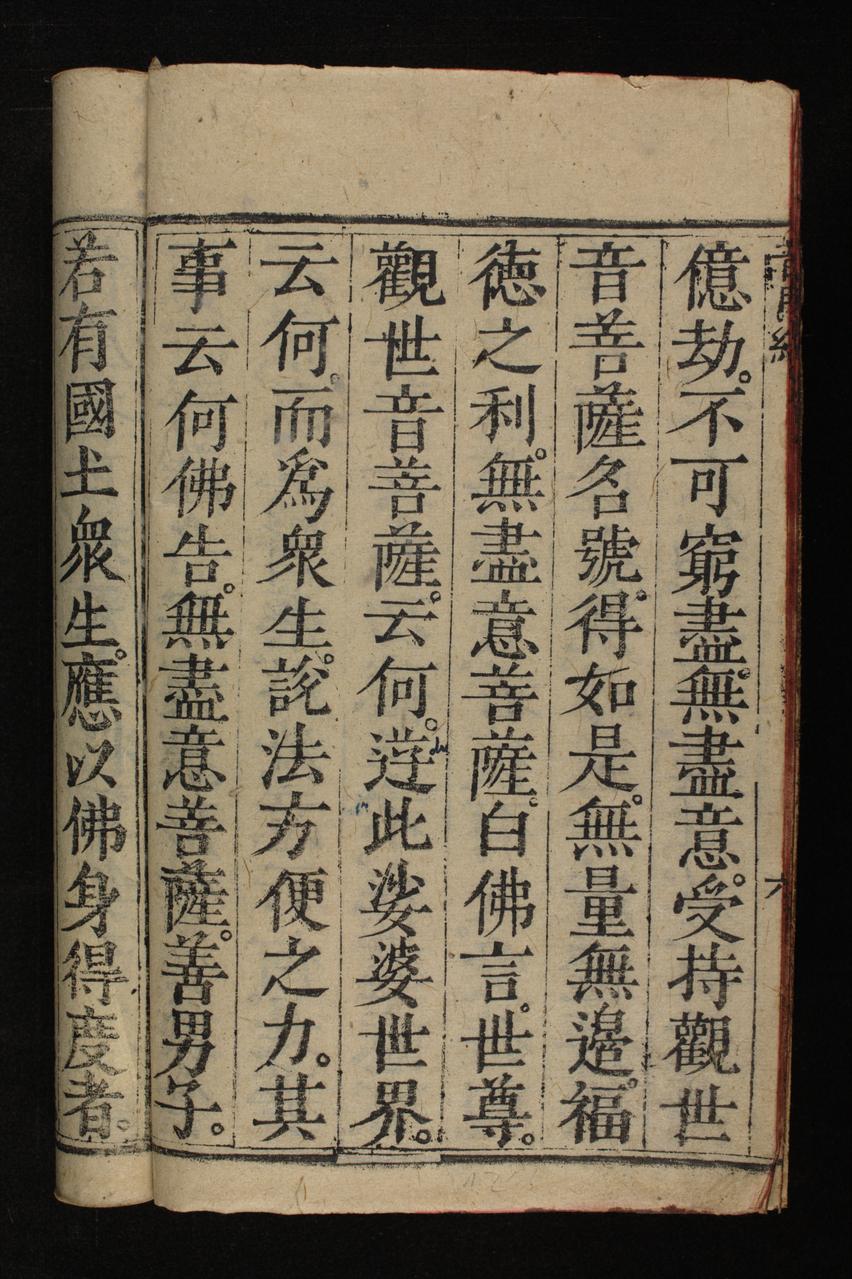 億劫。不可窮盡。無盡意。受持觀世
音菩薩名號。得如是。無量無邉。福
徳之利。無盡意菩薩。白佛言。世尊。
觀世音菩薩。云何。遊此娑婆世界。
云何。而爲衆生。説法方便之力。其
事云何佛告。無盡意菩薩。善男子。
若有國土衆生。應以佛身得度者。